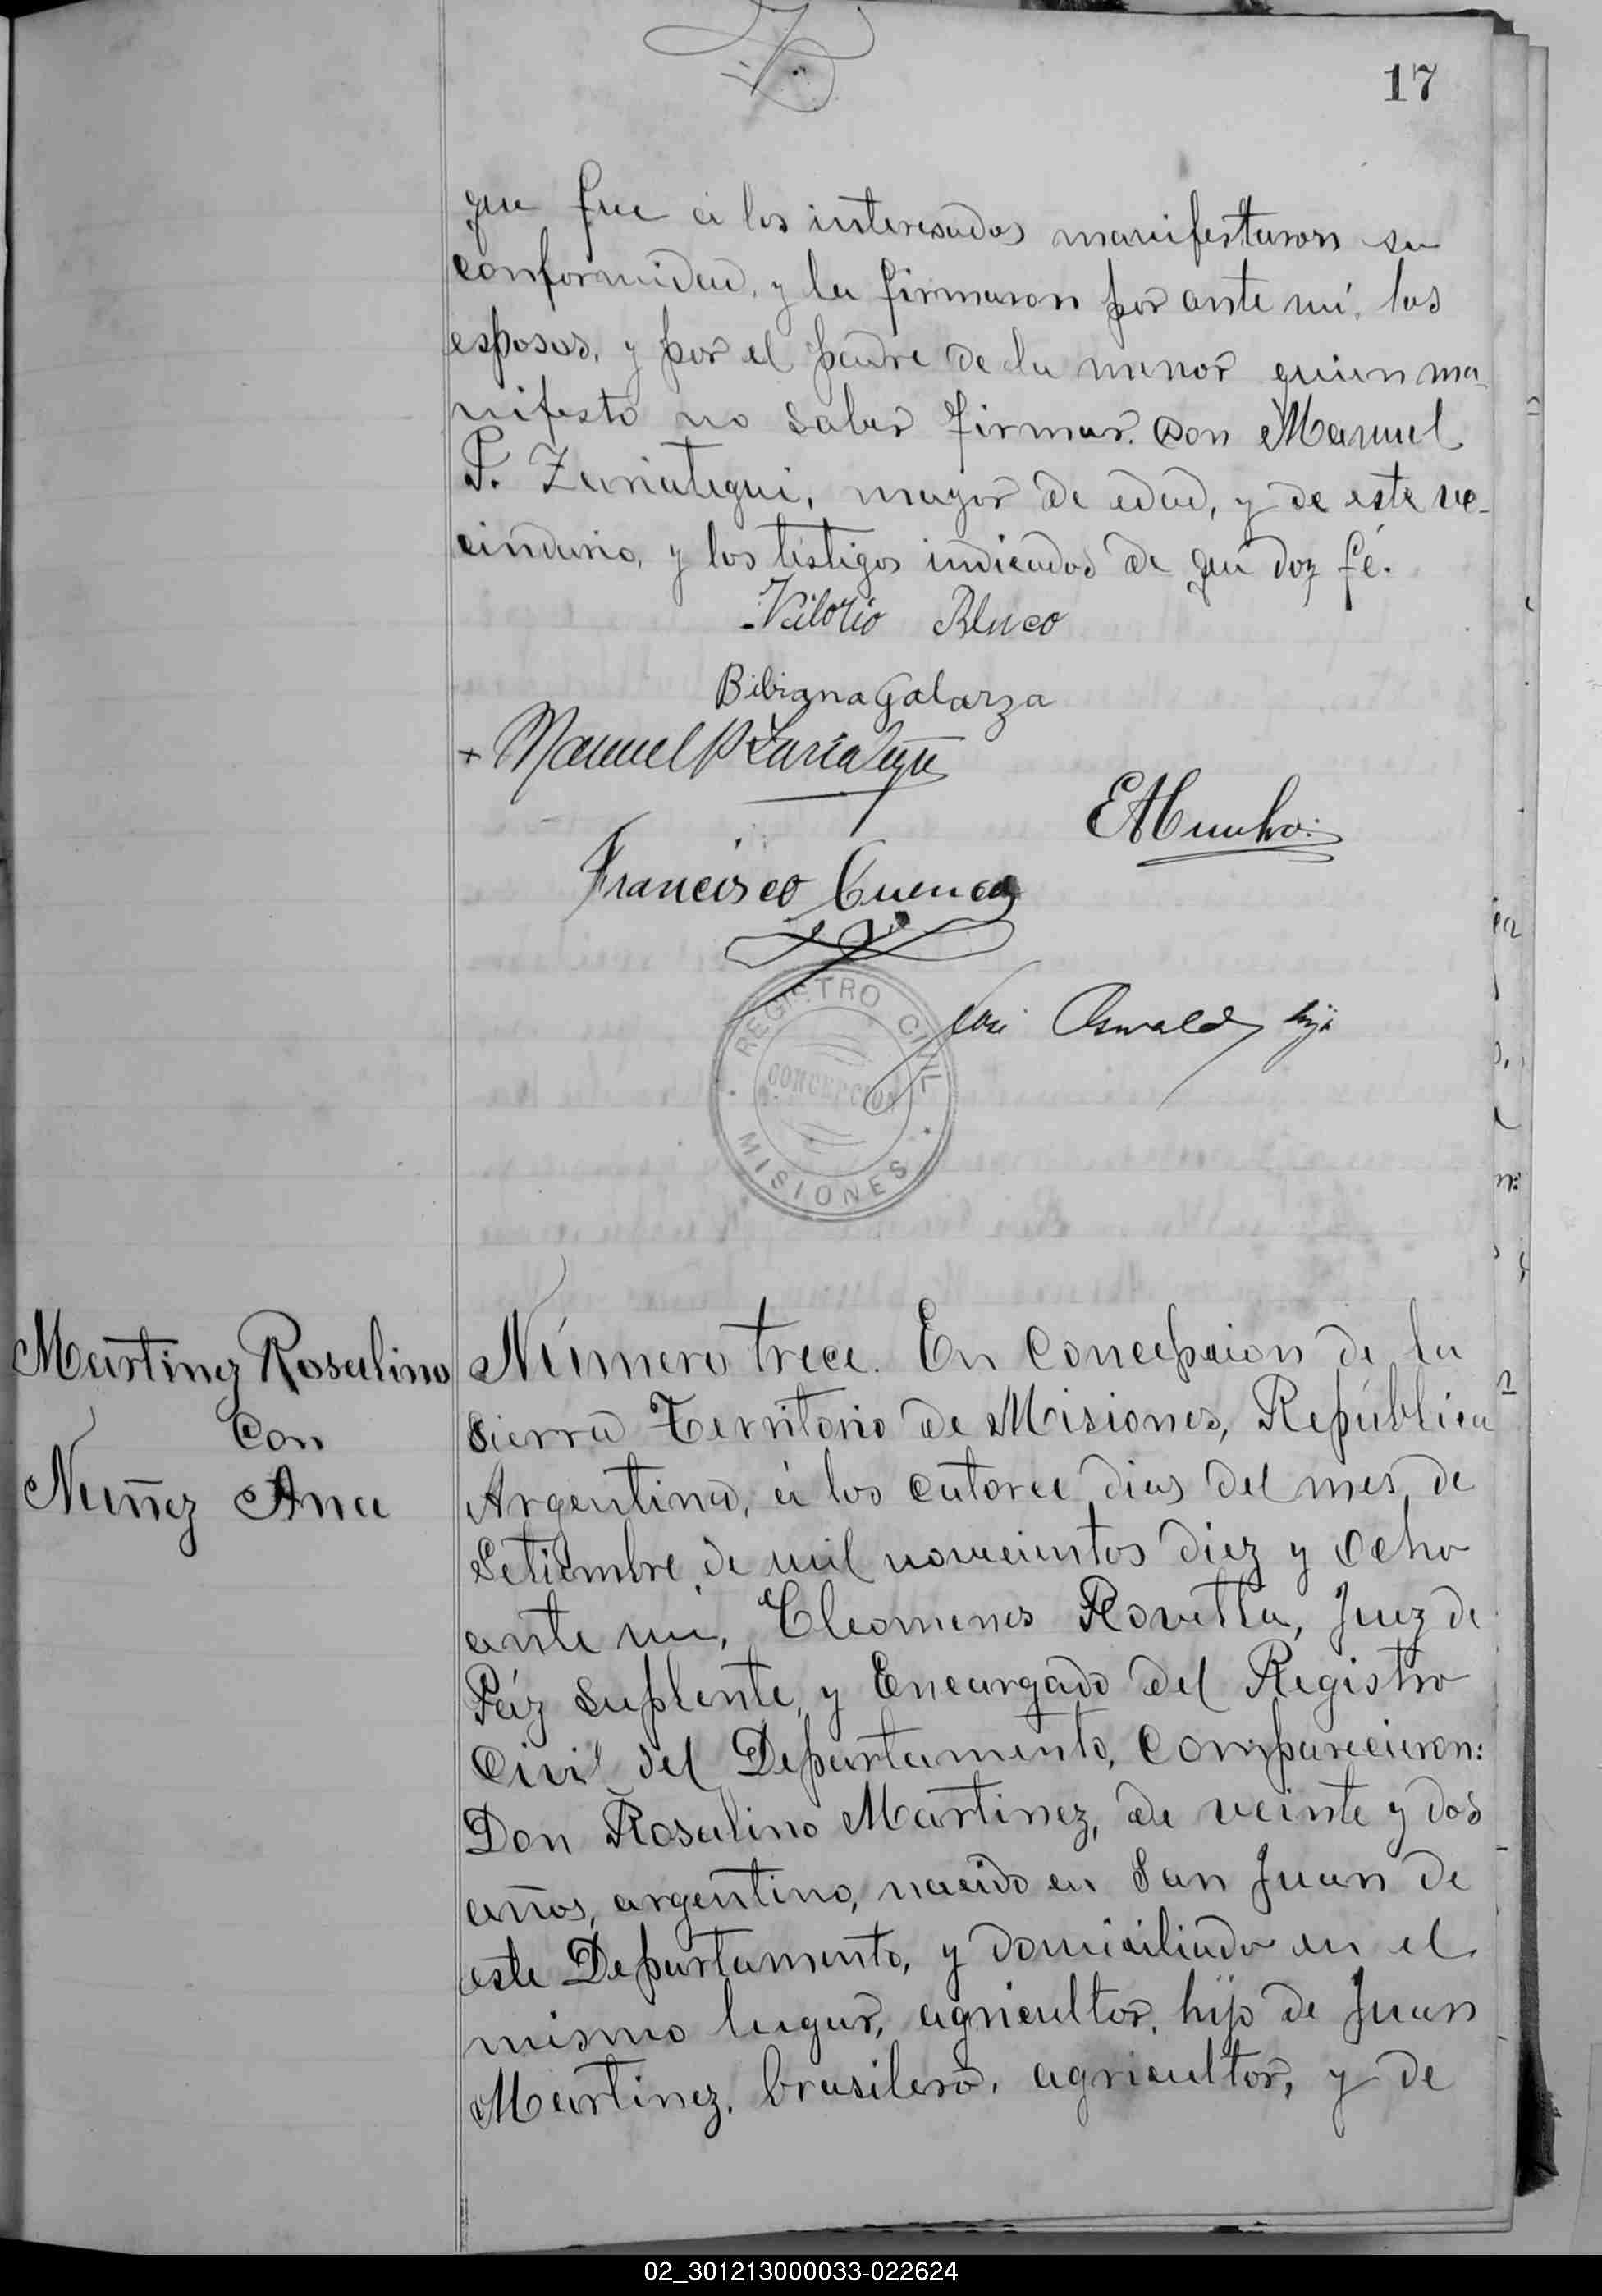 17
que fue á los interesados manifestaron su
conformidad, y la firmaron por ante mí, los
esposos, y por el padre de la menor quien ma-
nifestó no saber firmar. Don Manuel
P. Zariategui, mayor de edad, y de este ve-
cindario, y los testigos indicados de que doy fé.
Bibiana Galarza
+ Manuel P Zariategui
Francisco Cuenca
José Oswald hijo
REGISTRO CIVIL
CONCEPCION
MISIONES
Martinez Rosalino
Con
Nuñez Ana
Número trece. En Concepcion de la
Sierra Territorio de Misiones, República
Argentina, á los catorce dias del mes de
Setiembre de mil novecientos diez y ocho
ante mí, Cleomenes Rovetta, Juez de
Páz Suplente, y Encargado del Registro
Civil del Departamento, comparecieron:
Don Rosalino Martinez, de veinte y dos
años, argentino, nacido en San Juan de
este Departamento, y domiciliado en el
mismo lugar, agricultor, hijo de Juan
Martinez, brasilero, agricultor, y de
02_301213000033-022624